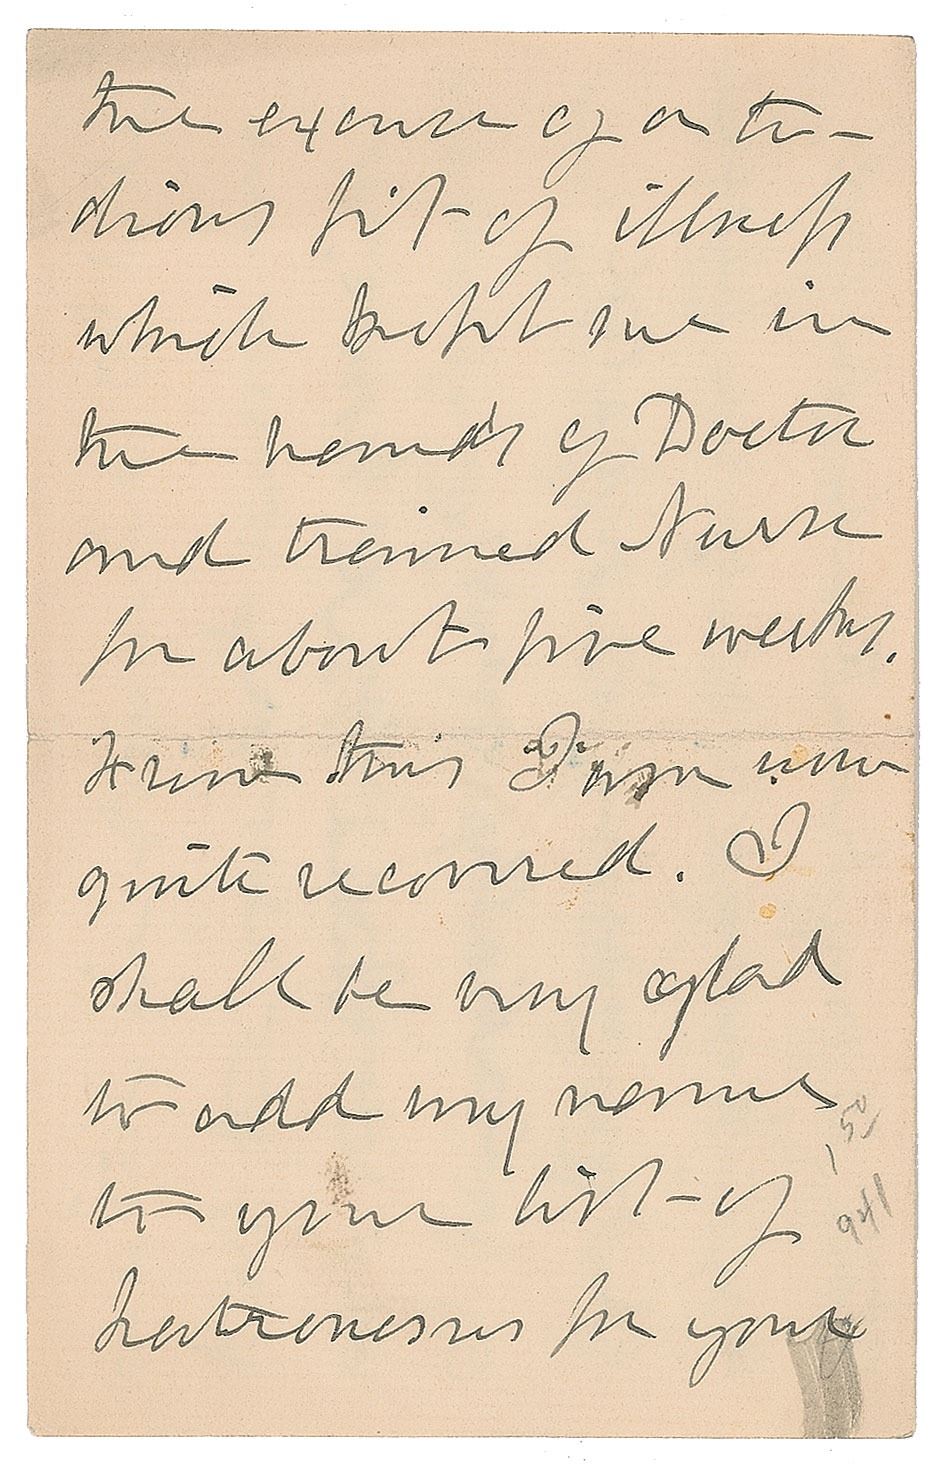 the excuse of a te-
dious fit of illness
which kept me in
the hands of Doctor
and trained Nurse
for about five weeks.
From this I am now
quite recovered. I
shall be very glad
to add my name
to your list of
patronesses for your
1 50
941